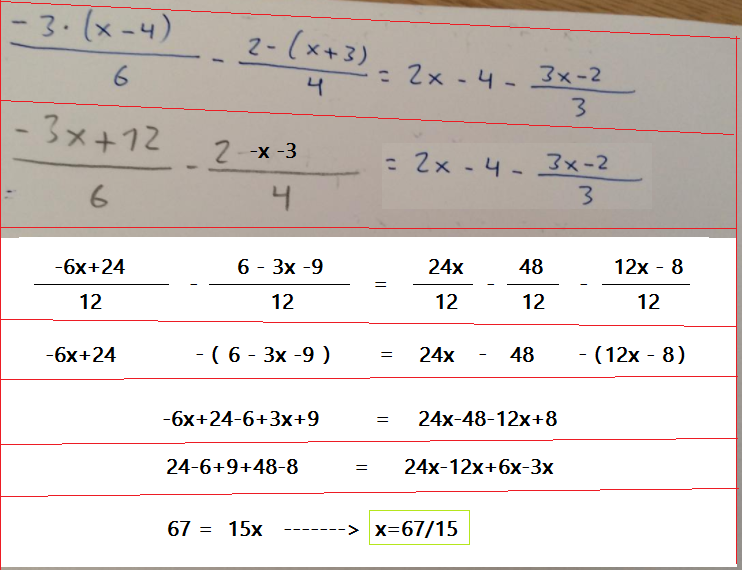 (-3·(x-4))/6 - (2-(x+3))/4 = 2x - 4 - (3x-2)/3
(-3x+12)/6 - (2 -x -3)/4 = 2x - 4 - (3x-2)/3
=
(-6x+24)/12 - (6 - 3x -9)/12 = 24x/12 - 48/12 - (12x - 8)/12
-6x+24 - ( 6 - 3x -9 ) = 24x - 48 - (12x - 8)
-6x+24-6+3x+9 = 24x-48-12x+8
24-6+9+48-8 = 24x-12x+6x-3x
67 = 15x -------> x=67/15